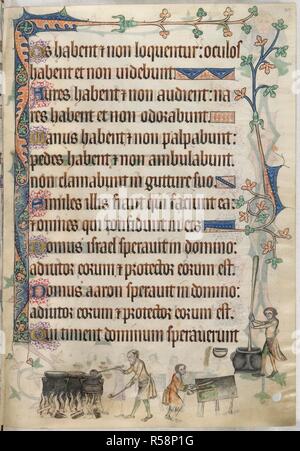 Os habent ⁊ non loquentur: oculos
habent et non uidebunt
Aures habent ⁊ non audient: na
res habent et non odorabunt
Manus habent ⁊ non palpabunt:
pedes habent ⁊ non ambulabunt.
non clamabunt in gutture suo.
Similes illis fiant qui faciunt ea:
⁊ omnes qui confidunt in eis
Domus israel sperauit in domino:
adiutor eorum ⁊ protector eorum est.
Domus aaron sperauit in domino:
adiutor eorum ⁊ protector eorum est.
Qui timent dominum sperauerunt
alamy
R58P1G